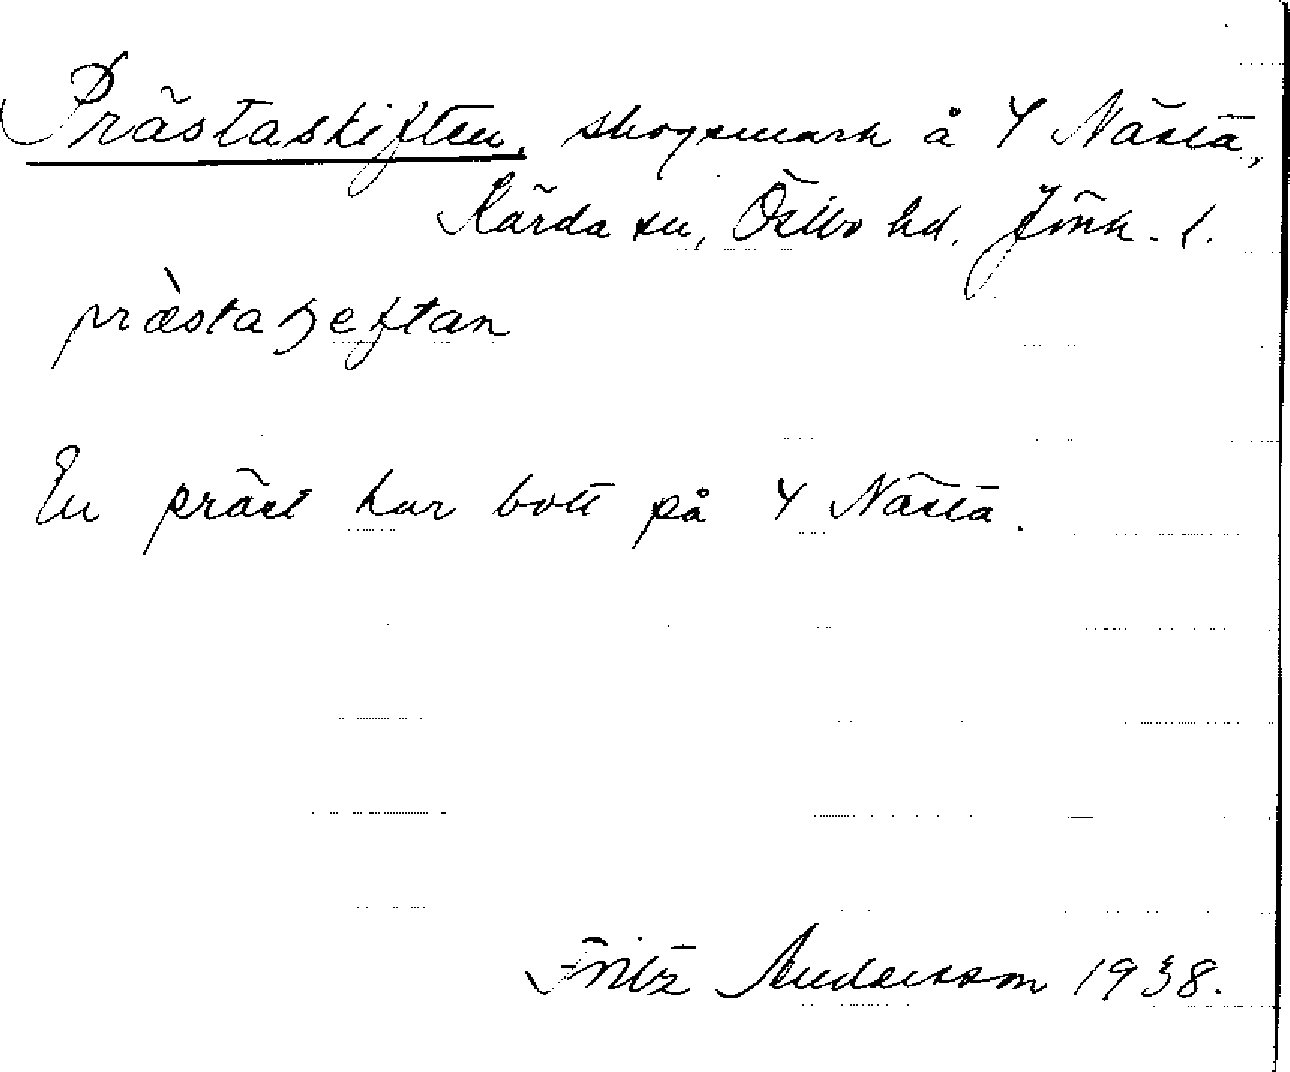 Prästaskiften, skogsmark å Y Nästa,
Kärda sn, Östbo hd. Jönk. l.
prὰstaʒeftan
En präst har bott på Y Nästa.
Fritz Andersson 1938.